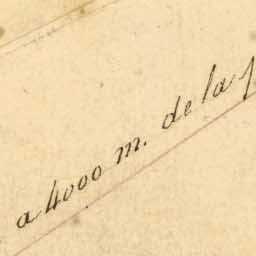 a 4000 m. de la